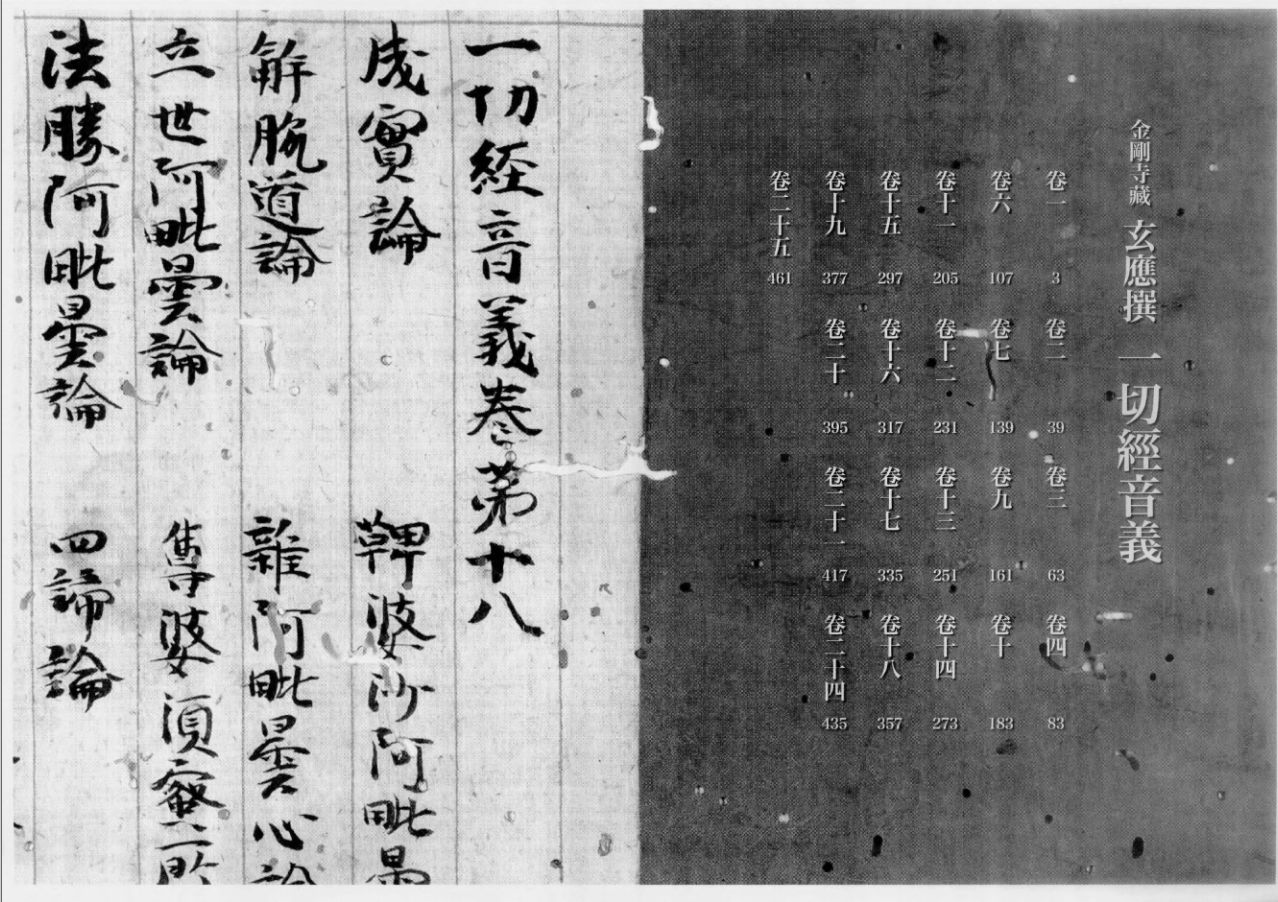 金剛寺藏 玄應撰 一切經音義
卷一 3 卷二 39 卷三 63 卷四 83
卷六 107 卷七 139 卷九 161 卷十 183
卷十一 205 卷十二 231 卷十三 251 卷十四 273
卷十五 297 卷十六 317 卷十七 335 卷十八 357
卷十九 377 卷二十 395 卷二十一 417 卷二十四 435
卷二十五 461
一切經音義卷第十八
成實論 鞞婆沙阿毗曇
解脫道論 雜阿毗曇心論
立世阿毗曇論 尊婆須蜜所
法勝阿毗曇論 四諦論